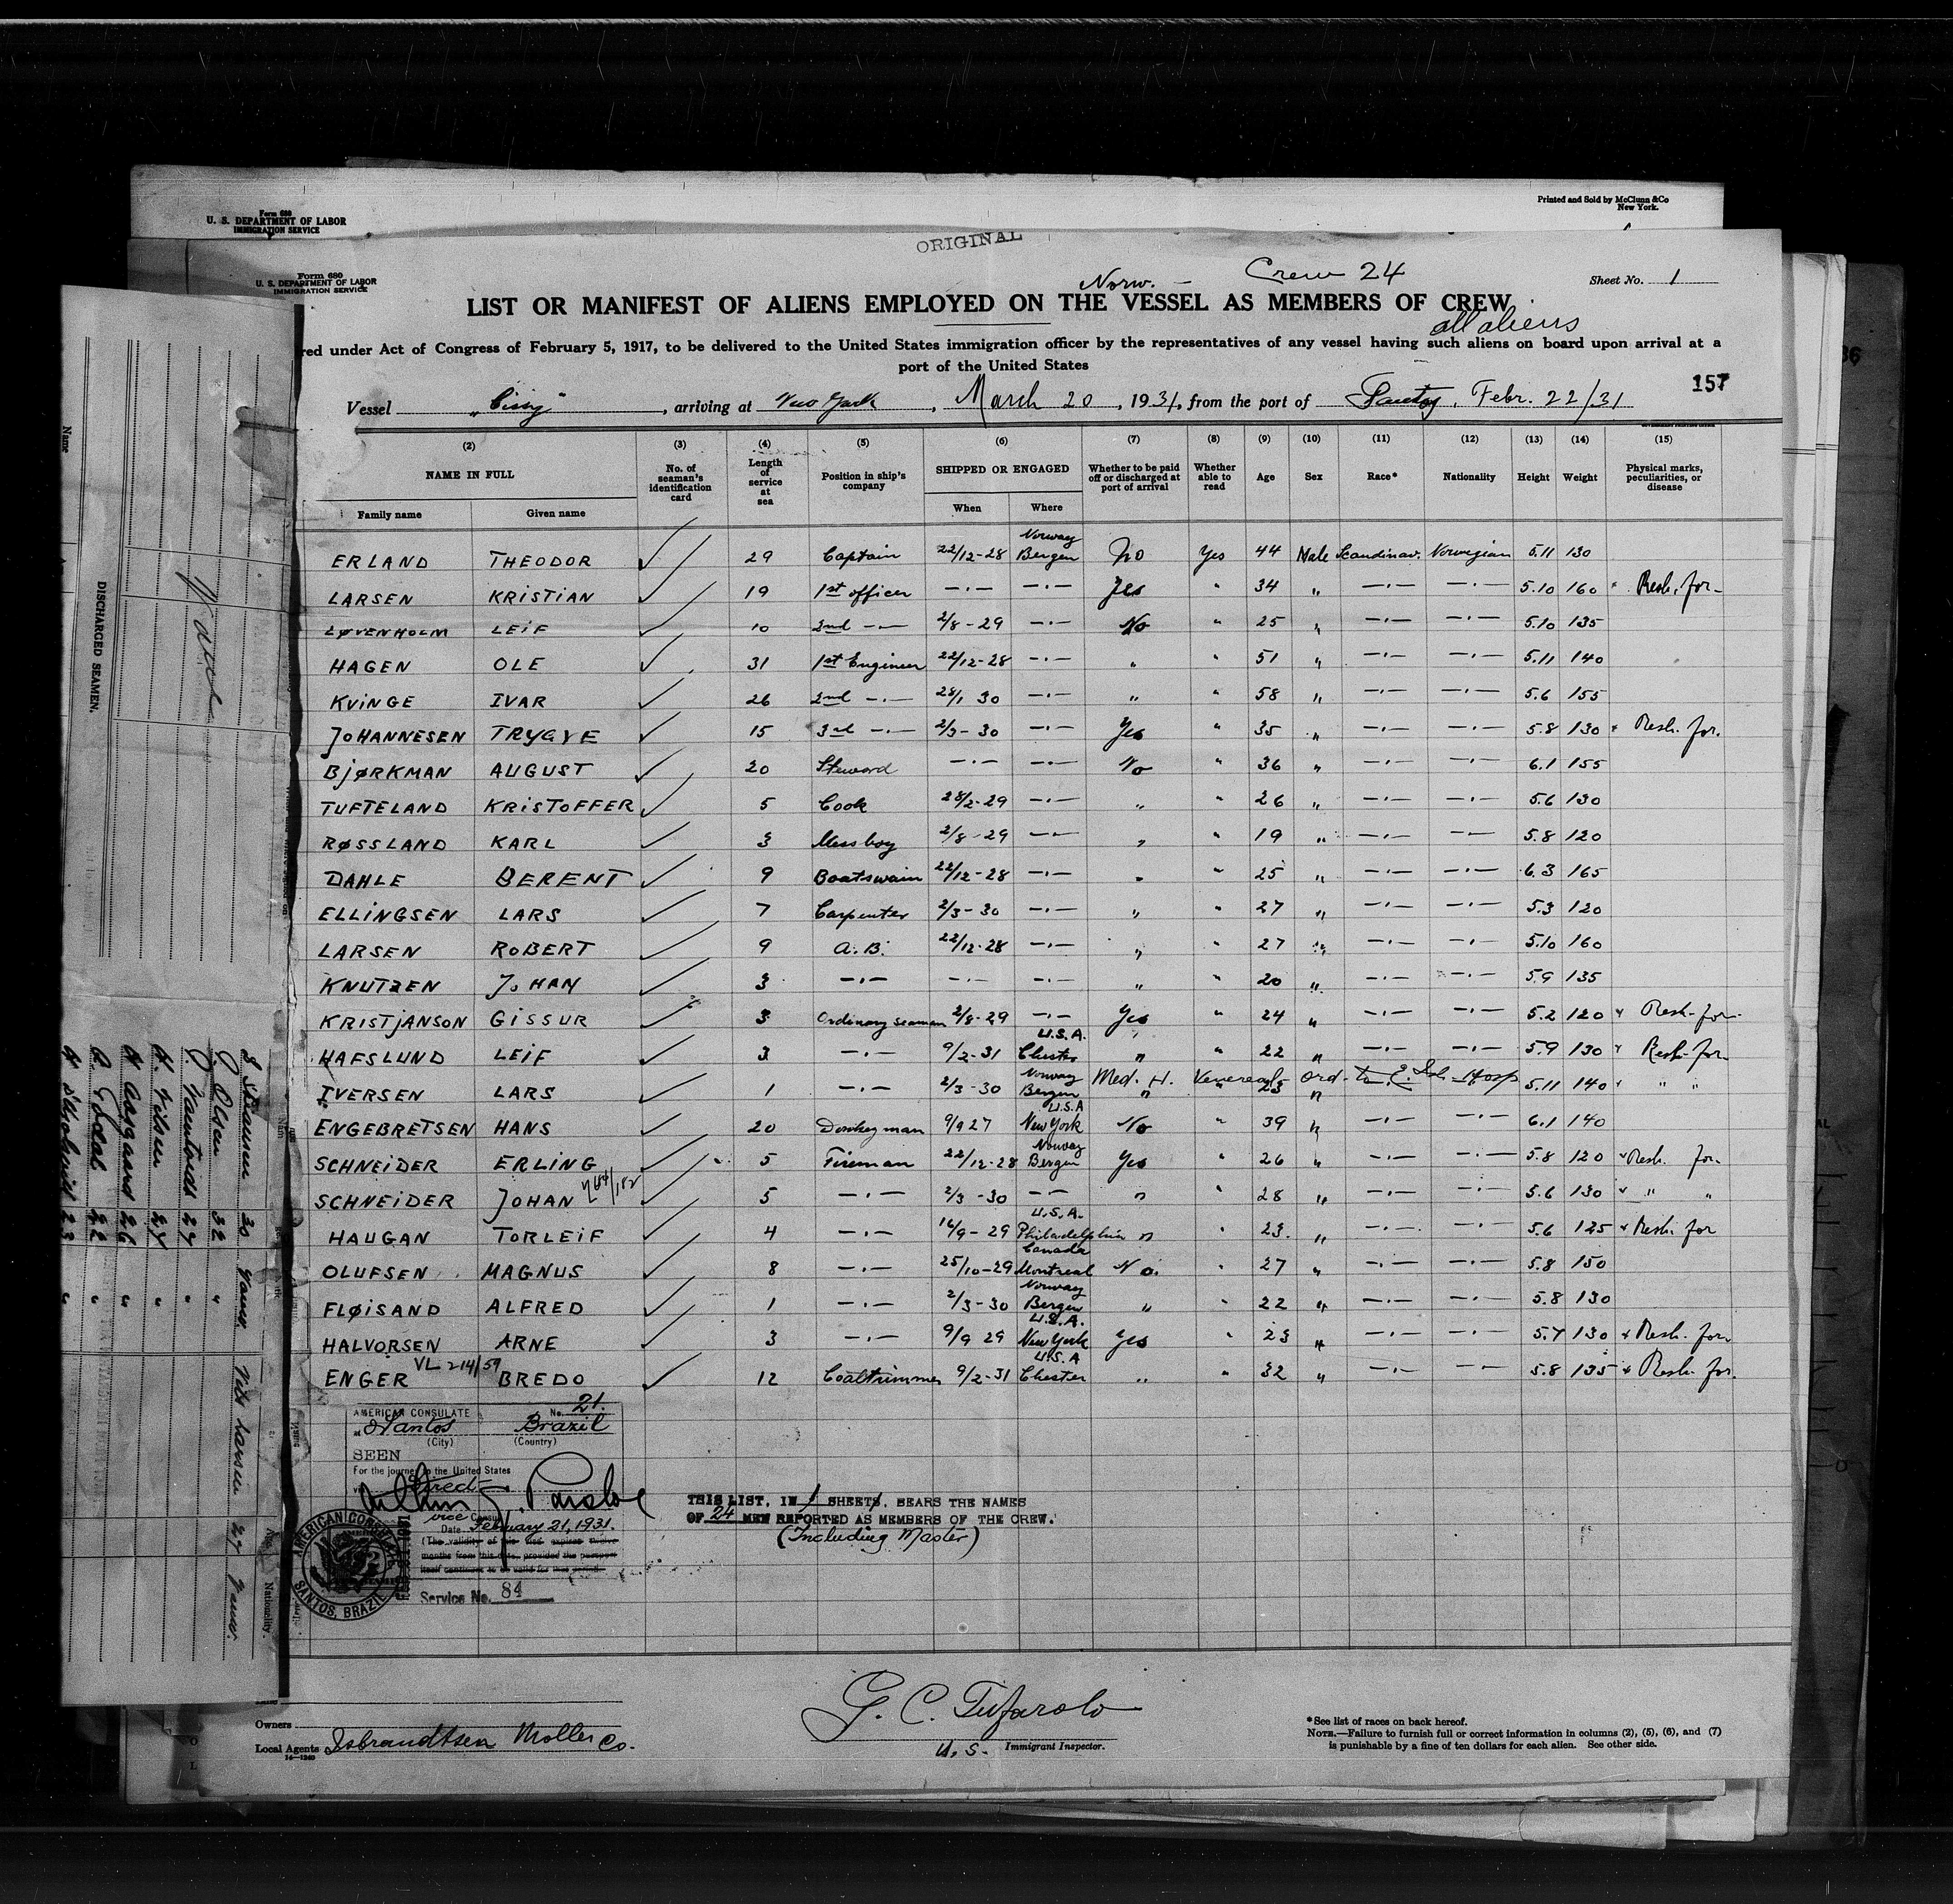 Form 680
U. S. DEPARTMENT OF LABOR
IMMIGRATION SERVICE
Printed and Sold by McClunn &Co
New York.
ORIGINAL
Form 680
U. S. DEPARTMENT OF LABOR
IMMIGRATION SERVICE
Norw. – Crew 24
Sheet No. 1
LIST OR MANIFEST OF ALIENS EMPLOYED ON THE VESSEL AS MEMBERS OF CREW
all aliens
red under Act of Congress of February 5, 1917, to be delivered to the United States immigration officer by the representatives of any vessel having such aliens on board upon arrival at a
port of the United States
157
Vessel "Cissy", arriving at New York, March 20, 1931, from the port of Santos, Febr. 22/31
(2) (3) (4) (5) (6) (7) (8) (9) (10) (11) (12) (13) (14) (15)
NAME IN FULL
Family name Given name
No. of seaman's identification card
Length of service at sea
Position in ship's company
SHIPPED OR ENGAGED
When Where
Whether to be paid off or discharged at port of arrival
Whether able to read
Age Sex Race* Nationality Height Weight
Physical marks, peculiarities, or disease
ERLAND THEODOR 29 Captain 22/12-28 Norway Bergen No Yes 44 Male Scandinav. Norwegian 5.11 130
LARSEN KRISTIAN 19 1st officer —·— —·— Yes " 34 " —·— —·— 5.10 160 Resh. for.
LØVENHOLM LEIF 10 2nd —·— 2/8-29 —·— No " 25 " —·— —·— 5.10 135
HAGEN OLE 31 1st Engineer 22/12-28 —·— " " 51 " —·— —·— 5.11 140
KVINGE IVAR 26 2nd —·— 28/1 30 —·— " " 58 " —·— —·— 5.6 155
JOHANNESEN TRYGVE 15 3rd —·— 2/3-30 —·— Yes " 35 " —·— —·— 5.8 130 Resh. for.
BJØRKMAN AUGUST 20 Steward —·— —·— No " 36 " —·— —·— 6.1 155
TUFTELAND KRISTOFFER 5 Cook 28/2-29 —·— " " 26 " —·— —·— 5.6 130
RØSSLAND KARL 3 Messboy 2/8-29 —·— " " 19 " —·— —·— 5.8 120
DAHLE BERENT 9 Boatswain 22/12-28 —·— " " 25 " —·— —·— 6.3 165
ELLINGSEN LARS 7 Carpenter 2/3-30 —·— " " 27 " —·— —·— 5.3 120
LARSEN ROBERT 9 A.B. 22/12-28 —·— " " 27 " —·— —·— 5.10 160
KNUTZEN JOHAN 3 —·— —·— —·— " " 20 " —·— —·— 5.9 135
KRISTJANSON GISSUR 3 Ordinary seaman 2/8-29 —·— Yes " 24 " —·— —·— 5.2 120 Resh. for.
HAFSLUND LEIF 3 —·— 9/2-31 U.S.A. Chester " " 22 " —·— —·— 5.9 130 Resh. for.
IVERSEN LARS 1 —·— 2/3-30 Norway Bergen " Med. H. Venereal 23 ord. to E. Isl. Hosp 5.11 140 " "
ENGEBRETSEN HANS 20 Donkeyman 9/9 27 U.S.A New York No " 39 " —·— —·— 6.1 140
SCHNEIDER ERLING 5 Fireman 22/12-28 Norway Bergen Yes " 26 " —·— —·— 5.8 120 Resh. for.
SCHNEIDER JOHAN 5 —·— 2/3-30 —·— " " 28 " —·— —·— 5.6 130 " "
HAUGAN TORLEIF 4 —·— 16/9-29 U.S.A. Philadelphia " " 23 " —·— —·— 5.6 125 Resh. for
OLUFSEN MAGNUS 8 —·— 25/10-29 Canada Montreal No. " 27 " —·— —·— 5.8 150
FLØISAND ALFRED 1 —·— 2/3-30 Norway Bergen " " 22 " —·— —·— 5.8 130
HALVORSEN ARNE 3 —·— 9/9 29 U.S.A. New York Yes " 23 " —·— —·— 5.7 130 Resh. for.
VL 214/59
ENGER BREDO 12 Coaltrimmer 9/2-31 U.S.A Chester " " 32 " —·— —·— 5.8 135 Resh. for.
AMERICAN CONSULATE No. 21.
at Santos Brazil
(City) (Country)
SEEN
For the journey to the United States
direct
vice Consul
Date February 21, 1931.
(The validity of this visa expires twelve
months from this date, provided the passport
itself continues to be valid for that period.
Service No. 84
AMERICAN CONSULATE
SANTOS, BRAZIL
THIS LIST, IN 1 SHEETS, BEARS THE NAMES
OF 24 MEN REPORTED AS MEMBERS OF THE CREW.
(Including Master)
G. C. Tufarolo
U.S. Immigrant Inspector.
Owners
Local Agents Isbrandtsen Moller Co.
14—1240
*See list of races on back hereof.
NOTE.—Failure to furnish full or correct information in columns (2), (5), (6), and (7)
is punishable by a fine of ten dollars for each alien. See other side.
Name
DISCHARGED SEAMEN.
Nationality.
Olsen 32 "
24 "
H Aasgaard 26 "
22 "
23 "